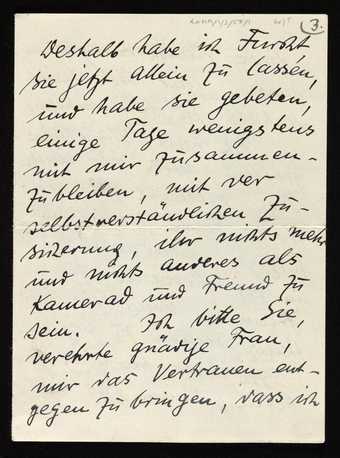 3.
Deshalb habe ich Furcht
sie jetzt allein zu lassen,
und habe sie gebeten,
einige Tage wenigstens
mit mir zusammen-
zubleiben, mit der
selbstverständlichen Zu-
sicherung, ihr nichts mehr
und nichts anderes als
Kamerad und Freund zu
sein. Ich bitte Sie,
verehrte gnädige Frau,
mir das Vertrauen ent-
gegen zu bringen, dass ich